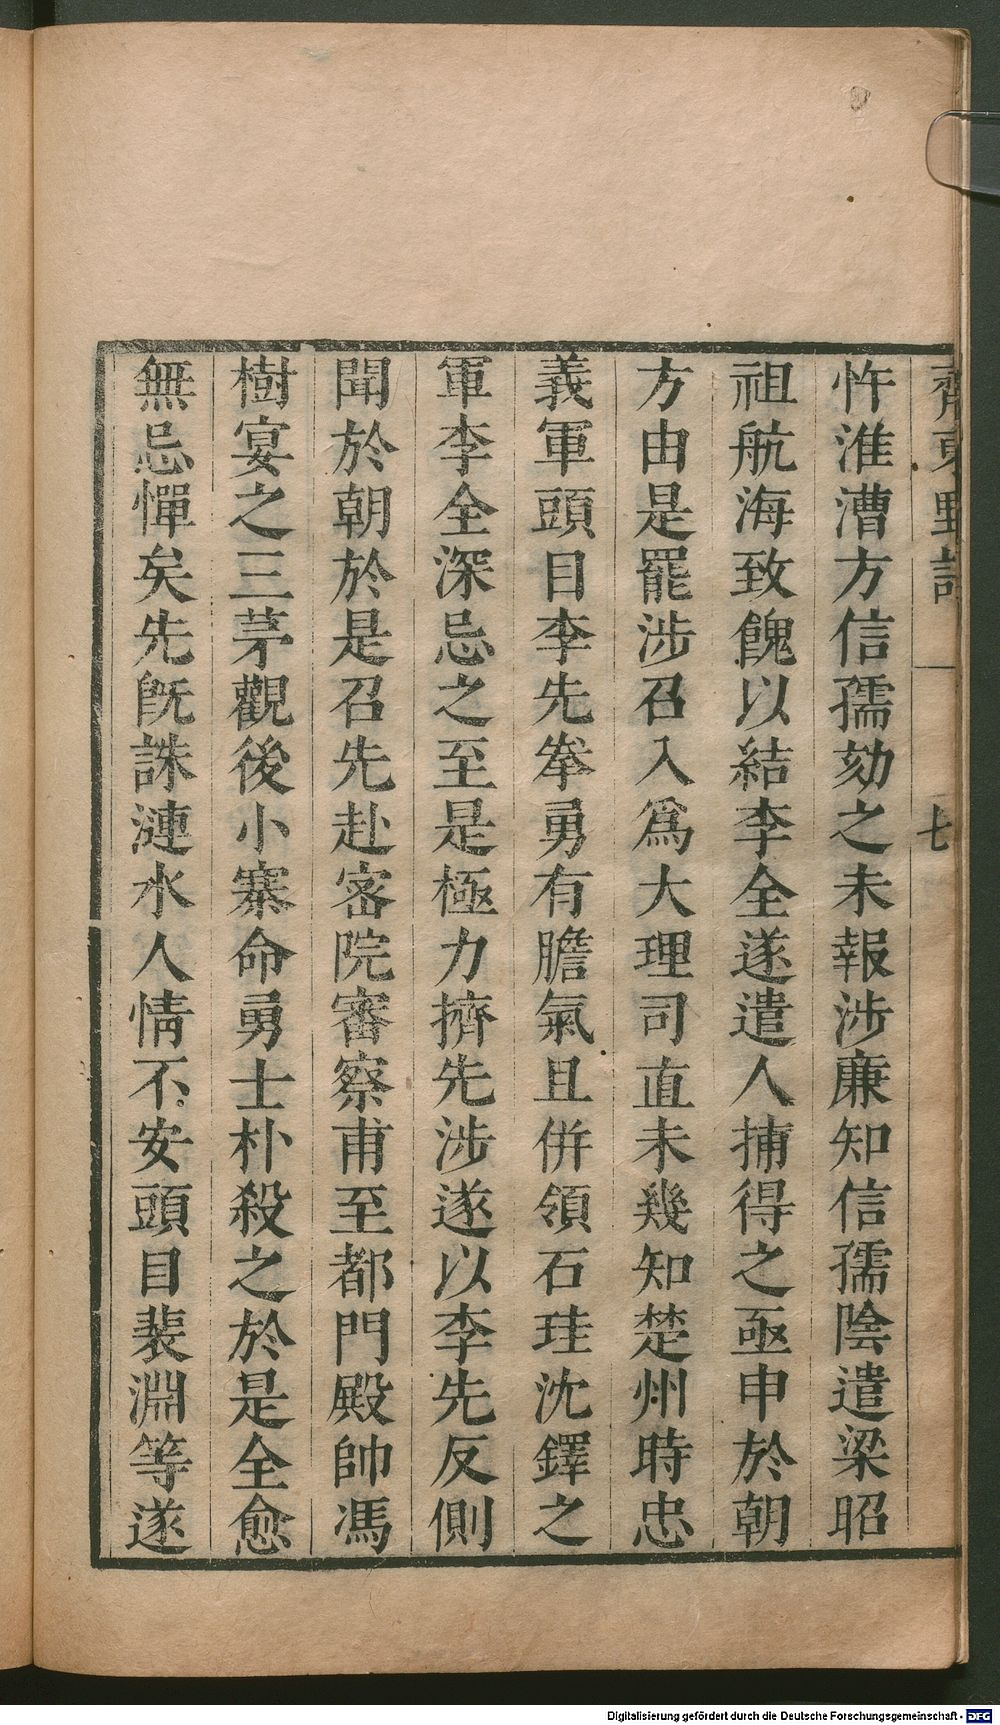 忤淮漕方信孺劾之未報涉廉知信孺陰遣梁昭
祖航海致餽以結李全遂遣人捕得之亟申於朝
方由是罷涉召入爲大理司直未幾知楚州時忠
義軍頭目李先拳勇有膽氣且併領石珪沈鐸之
軍李全深忌之至是極力擠先涉遂以李先反側
聞於朝於是召先赴密院審察甫至都門殿帥馮
樹宴之三茅觀後小寨命勇士朴殺之於是全愈
無忌憚矣先旣誅漣水人情不安頭目裴淵等遂
齊東野語 一 七
Digitalisierung gefördert durch die Deutsche Forschungsgemeinschaft - DFG